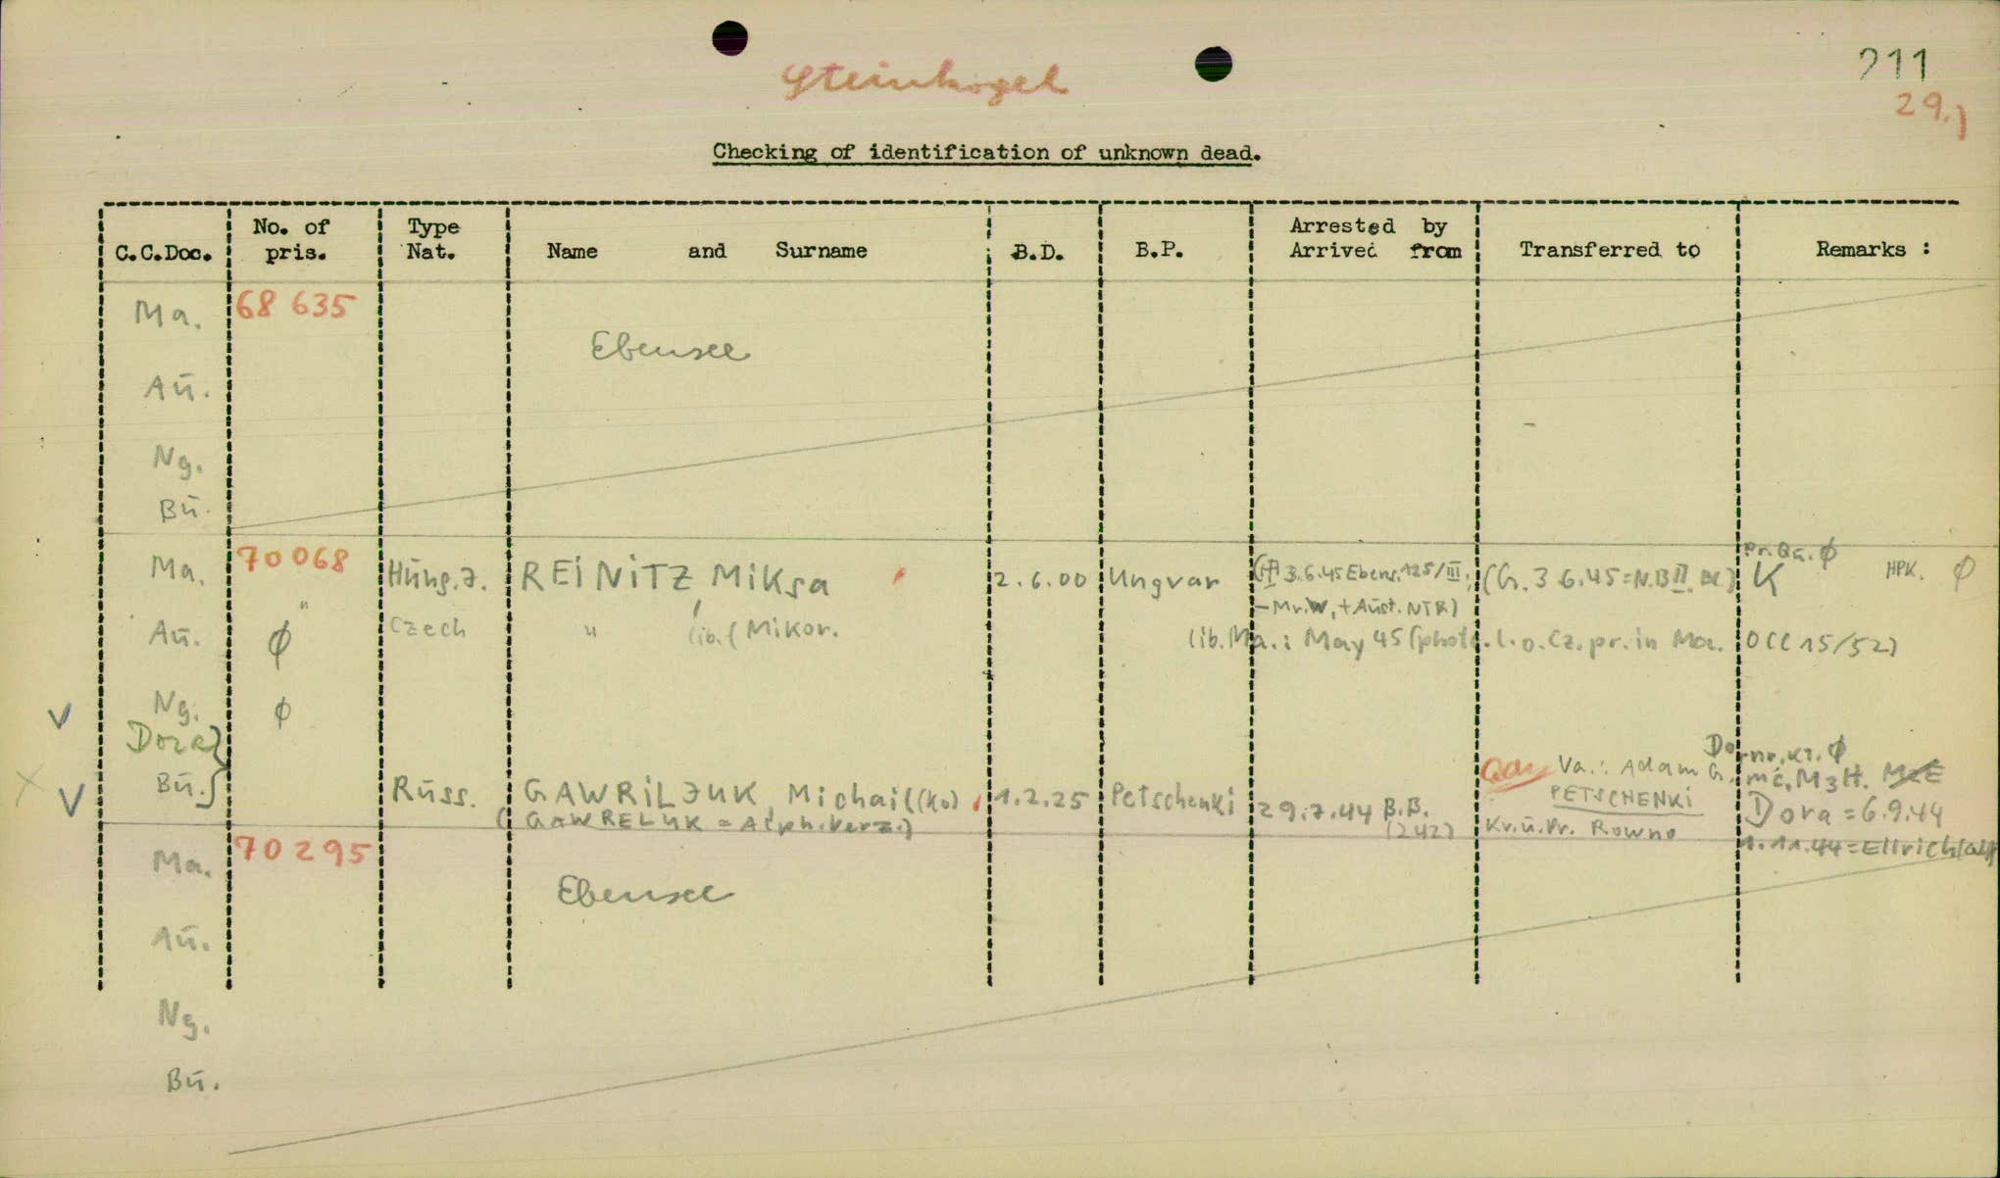 Steinkogel
211
29.)
Checking of identification of unknown dead.
C.C.Doc. No. of pris. Type Nat. Name and Surname B.D. B.P. Arrested by Arrived from Transferred to Remarks :
Ma. 68 635
Ebensee
Aū.
Ng.
Bū.
Ma. 70068 Hūng.J. REiNiTZ, Miksa 2.6.00 Ungvar 3.6.45 Ebens. 125/III; (G. 3 6.45=N.B II. K Ø HPK. Ø
- Mr.W, + Aūst. NTR)
Aū. " Ø Czech " lib. (Mikor. lib. Ma.: May 45 (photo. l. o. Cz. pr. in Ma. OCC 15/52)
V Ng. Ø
Dora}
X V Bū.} Rūss. GAWRiLJUK, Michail (Ko) 1.2.25 Petschenki 29.7.44 B.B. (242) Va.: Adam G. M3H.
(GAWRELUK = Alph. Verz.) PETSCHENKi Dora = 6.9.44
Kr.ū.Pr. Rowno 1.11.44 = Ellrich
Ma. 70295
Ebensee
Aū.
Ng.
Bū.